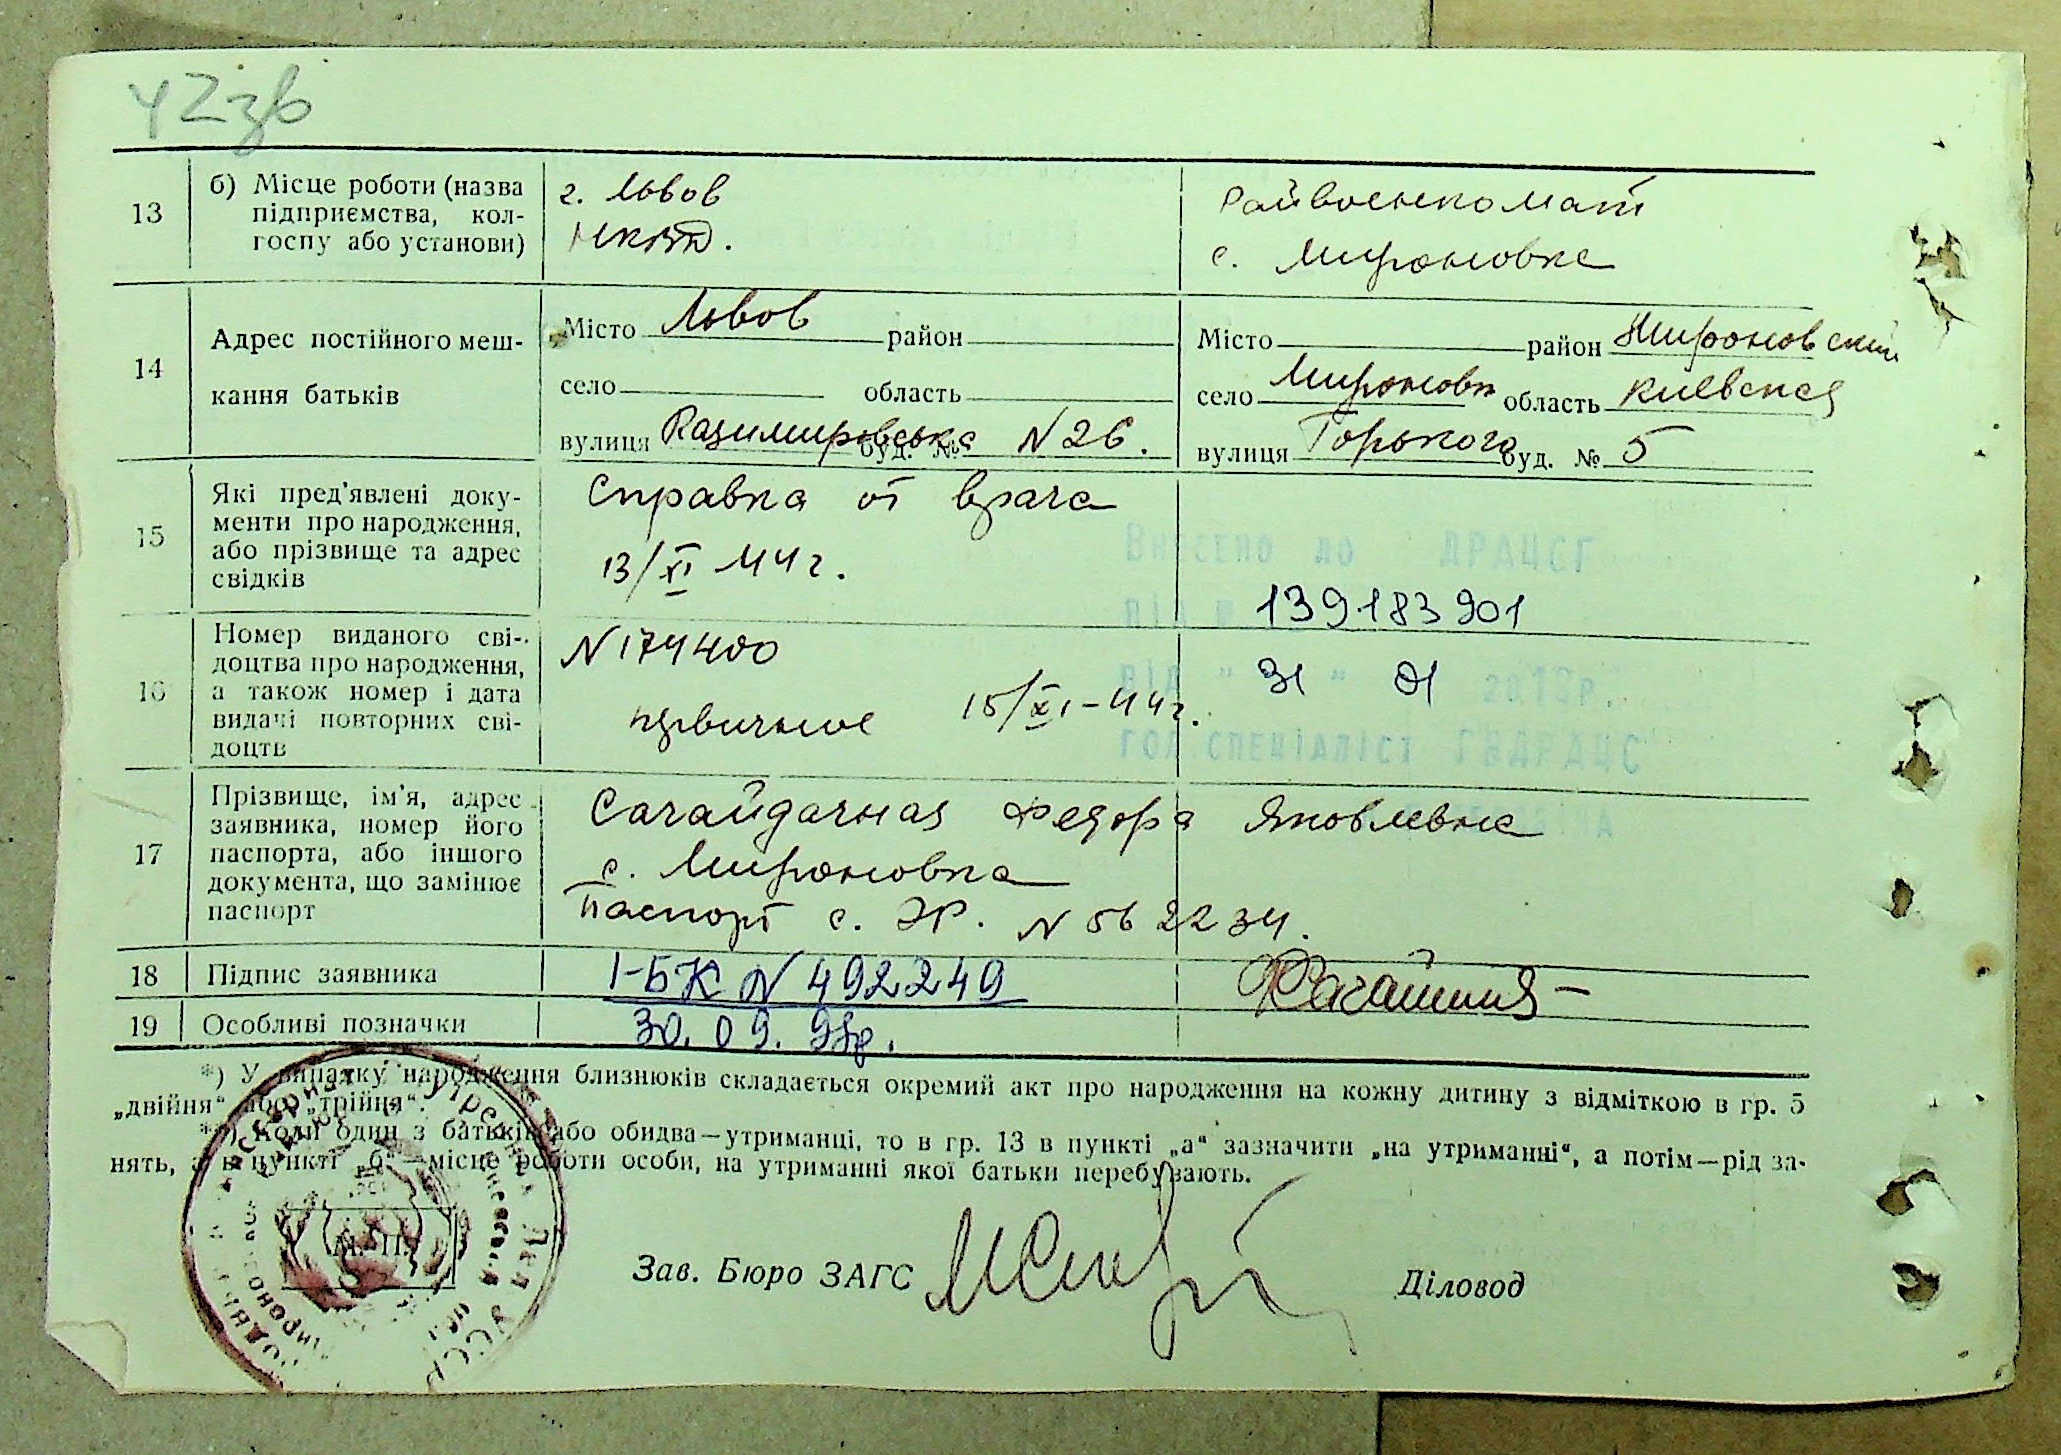 42зв
13 б) Місце роботи (назва підприємства, колгоспу або установи)
г. Львов
НКВД.
Райвоенкомат
с. Мироновка
14 Адрес постійного мешкання батьків
Місто Львов район
село область
вулиця Казимирівська буд. № N 26.
Місто район Мироновский
село Мироновка область Киевская
вулиця Горького буд. № 5
15 Які пред'явлені документи про народження, або прізвище та адрес свідків
Справка от врача
13/XI 44 г.
Внесено до ДРАЦСГ
під № 139183901
від " 31 " 01 2018р.
гол.спеціаліст ГВДРАЦС
16 Номер виданого свідоцтва про народження, а також номер і дата видачі повторних свідоцтв
N 174400
первичное 15/XI-44 г.
17 Прізвище, ім'я, адрес заявника, номер його паспорта, або іншого документа, що замінює паспорт
Сагайдачная Федора Яковлевна
с. Мироновка
Паспорт с. ЭР. N 562234.
18 Підпис заявника
I-БК N 492249
19 Особливі позначки
30.09.98р.
*) У випадку народження близнюків складається окремий акт про народження на кожну дитину з відміткою в гр. 5
„двійня“ або „трійня“.
**) Коли один з батьків або обидва—утриманці, то в гр. 13 в пункті „а“ зазначити „на утриманні“, а потім—рід за-
нять, а в пункті „б“—місце роботи особи, на утриманні якої батьки перебувають.
М. П.
Зав. Бюро ЗАГС
Діловод